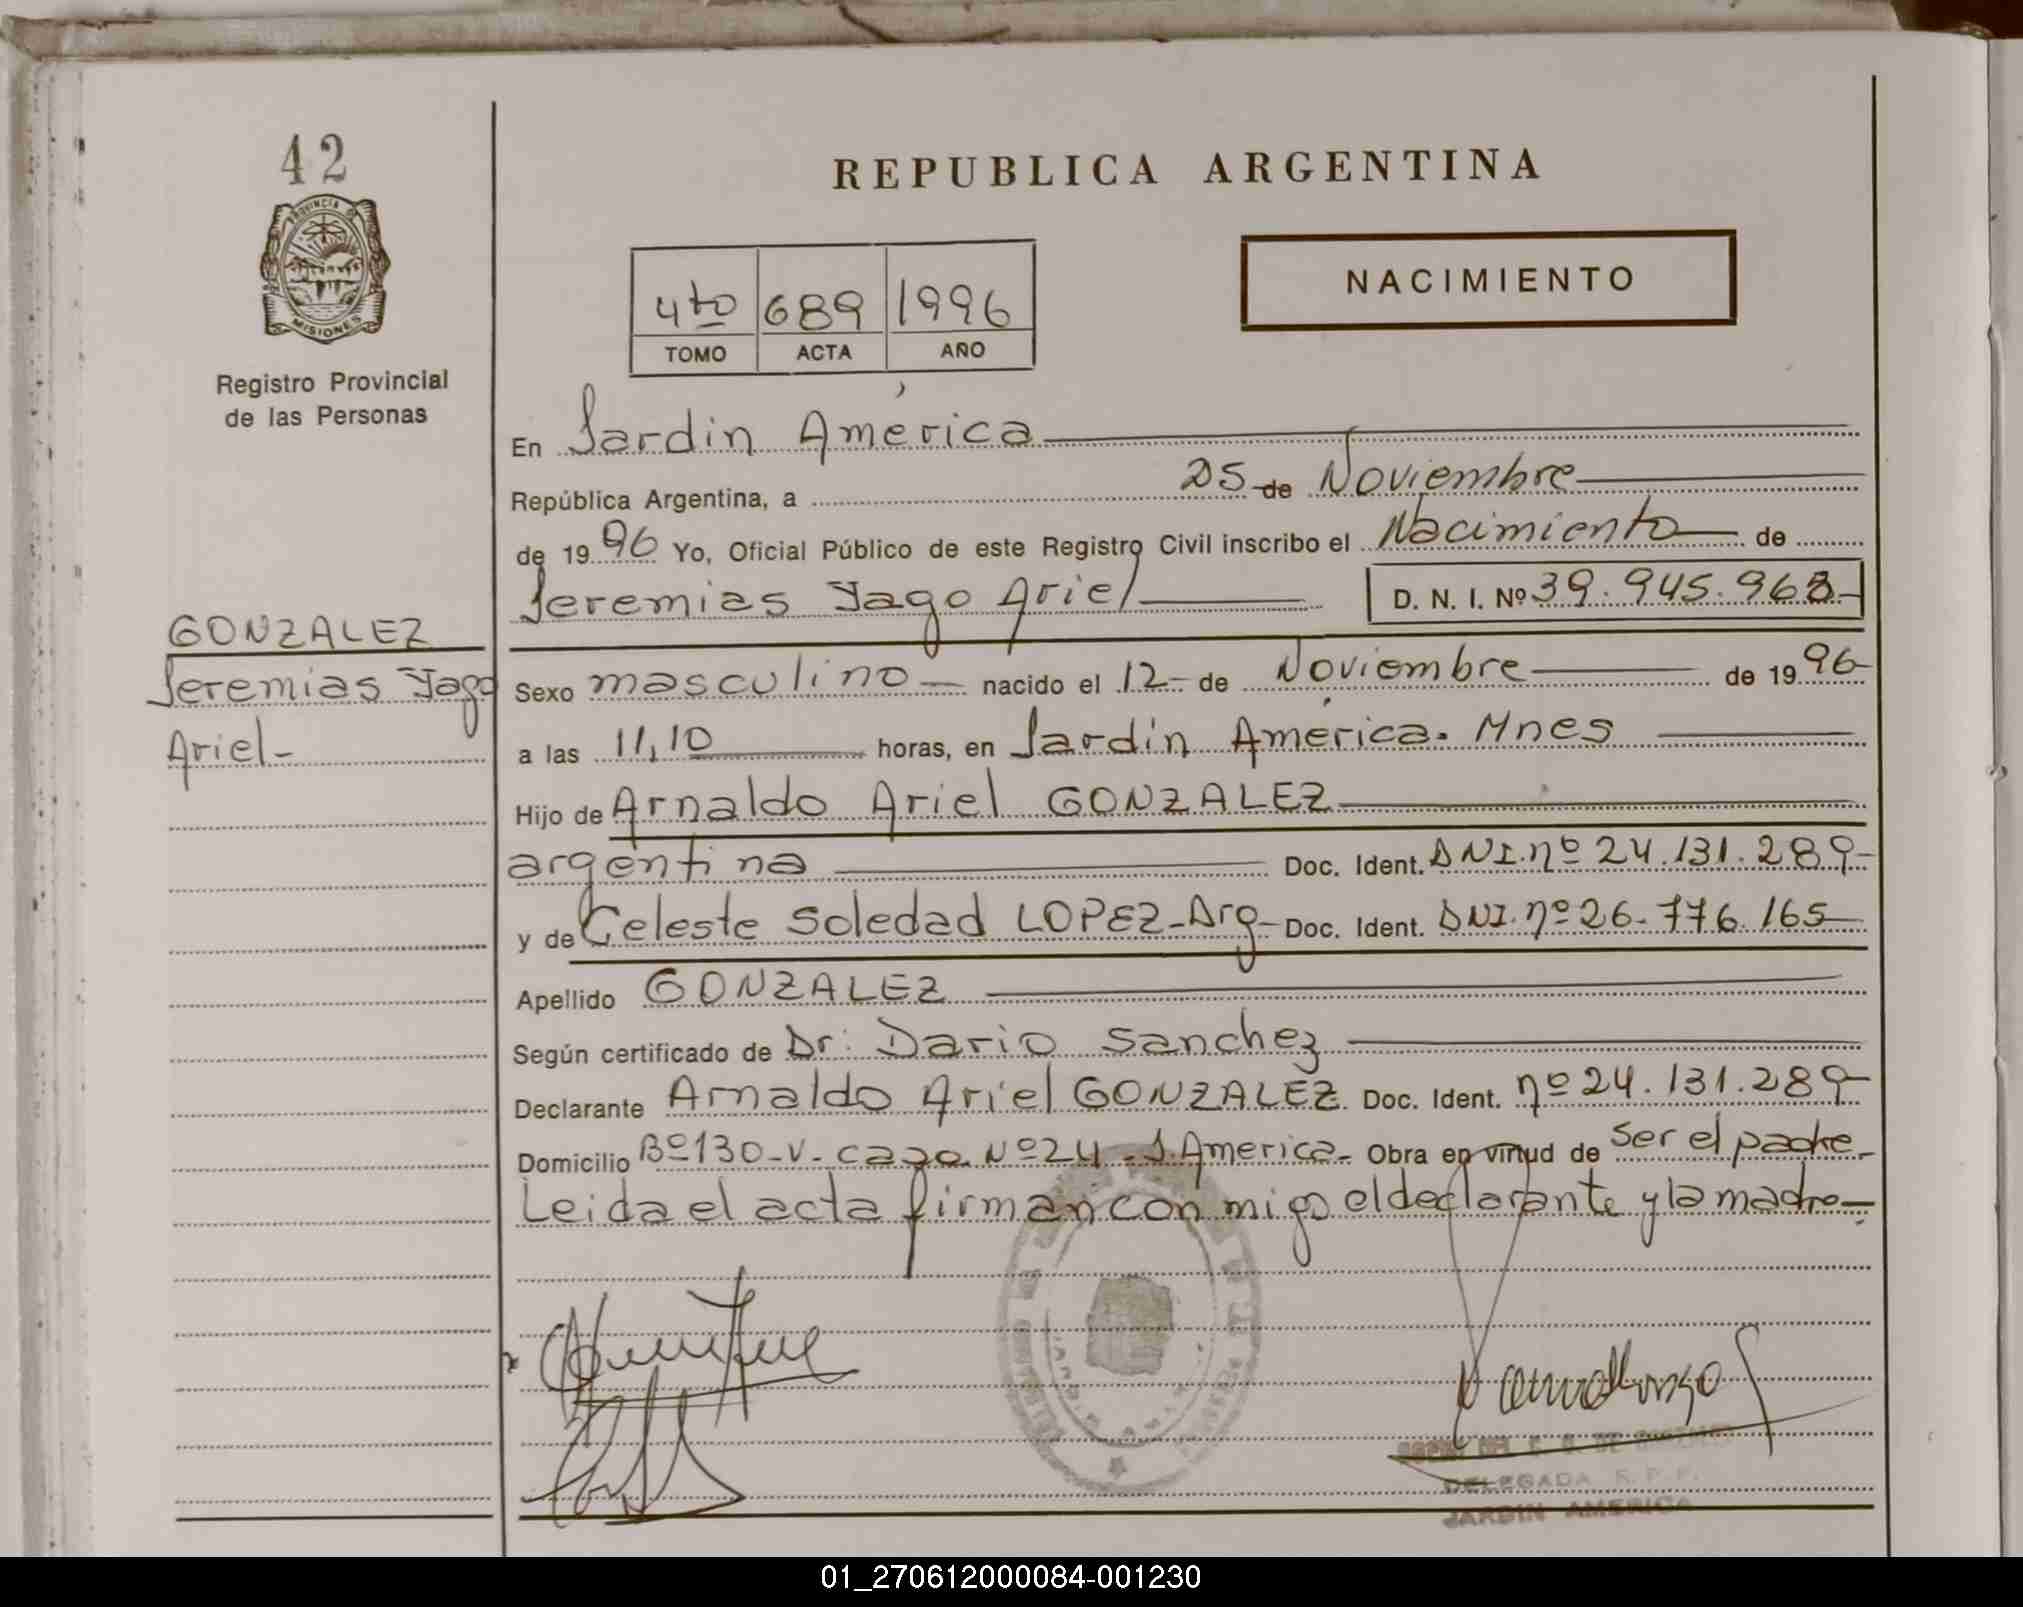 42
PROVINCIA DE
MISIONES
Registro Provincial
de las Personas
REPUBLICA ARGENTINA
NACIMIENTO
4to 689 1996
TOMO ACTA AÑO
En Jardin América
República Argentina, a 25 de Noviembre
de 1996 Yo, Oficial Público de este Registro Civil inscribo el Nacimiento de
Jeremias Yago Ariel D. N. I. Nº 39.945.968
GONZALEZ
Jeremias Yago
Ariel-
Sexo masculino nacido el 12 de Noviembre de 1996
a las 11,10 horas, en Jardin América. Mnes
Hijo de Arnaldo Ariel GONZALEZ
argentina Doc. Ident. DNI. nº 24.131.289-
y de Celeste Soledad LOPEZ-Arg- Doc. Ident. DNI. nº 26-776.165
Apellido GONZALEZ
Según certificado de Dr: Dario Sanchez
Declarante Arnaldo Ariel GONZALEZ Doc. Ident. nº 24.131.289-
Domicilio Bº 130-V- casa Nº 24 - J. America- Obra en virtud de ser el padre-
Leida el acta firman conmigo el declarante y la madre-
DELEGADA R. P. P.
JARDIN AMERICA
01_270612000084-001230